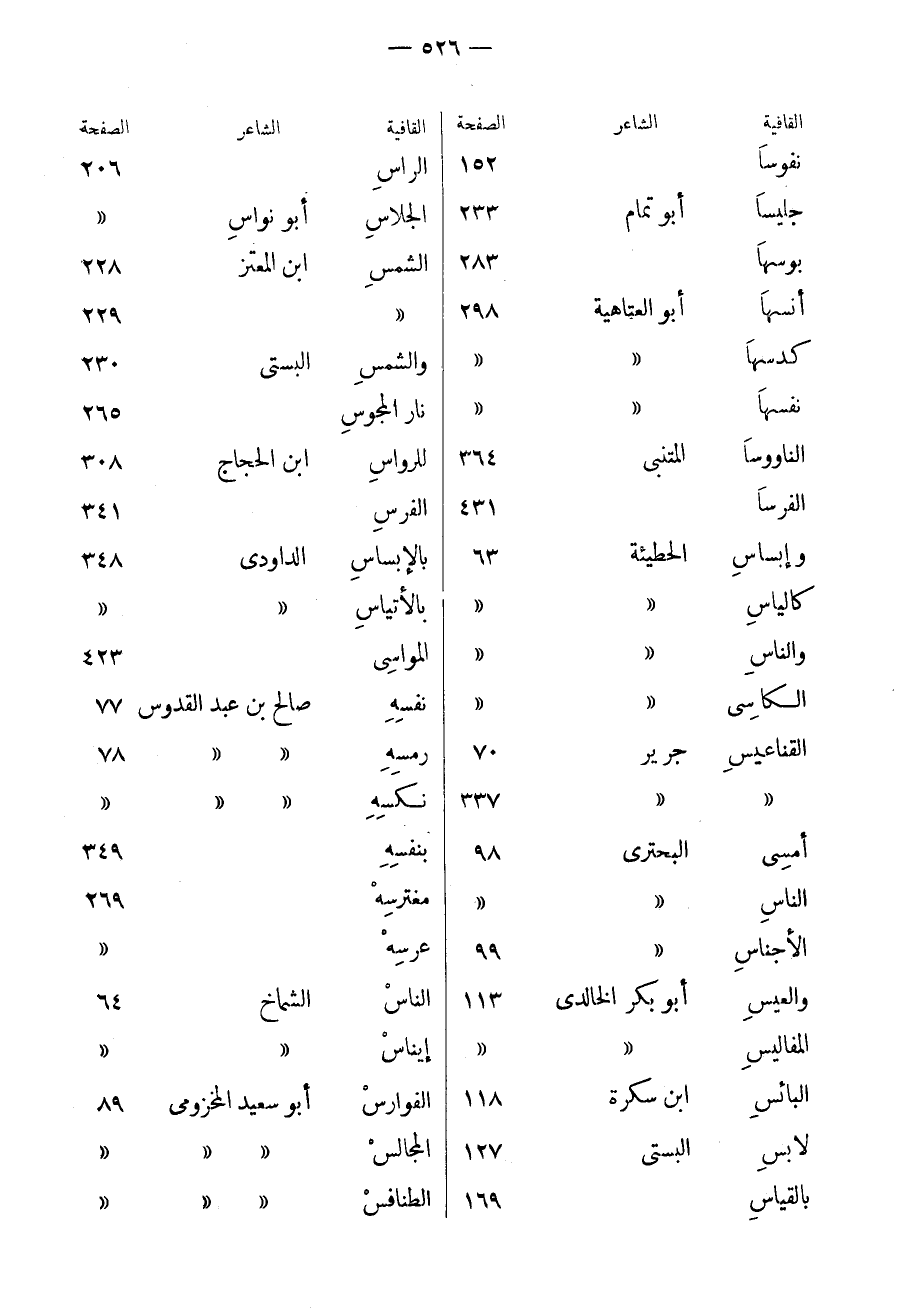 — ٥٢٦ —
القافية الشاعر الصفحة
نفوساَ ١٥٢
جليساَ أبو تمام ٢٣٣
بوسهاَ ٢٨٣
أنسهاَ أبو العتاهية ٢٩٨
كدسهاَ » »
نفسهاَ » »
الناووساَ المتنبى ٣٦٤
الفرساَ ٤٣١
وإبساسِ الحطيئة ٦٣
كالياسِ » »
والناسِ » »
الكاسِى » »
القناعيسِ جرير ٧٠
» » ٣٣٧
أمسِى البحترى ٩٨
الناسِ » »
الأجناسِ » ٩٩
والعيسِ أبو بكر الخالدى ١١٣
المفاليسِ » »
البائسِ ابن سكرة ١١٨
لابسِ البستى ١٢٧
بالقياسِ ١٦٩
القافية الشاعر الصفحة
الراسِ ٢٠٦
الجلاسِ أبو نواسِ »
الشمسِ ابن المعتز ٢٢٨
» ٢٢٩
والشمسِ البستى ٢٣٠
نار المجوسِ ٢٦٥
للرواسِ ابن الحجاج ٣٠٨
الفرسِ ٣٤١
بالإبساسِ الداودى ٣٤٨
بالأتياسِ » »
المواسِى ٤٢٣
نفسِهِ صالح بن عبد القدوس ٧٧
رمسِهِ » » ٧٨
نكسِهِ » » »
بنفسِهِ ٣٤٩
مفترسِهْ ٢٦٩
عرسِهْ »
الناسْ الشماخ ٦٤
إيناسْ » »
الفوارسْ أبو سعيد المخزومى ٨٩
المجالسْ » » »
الطنافسْ » » »